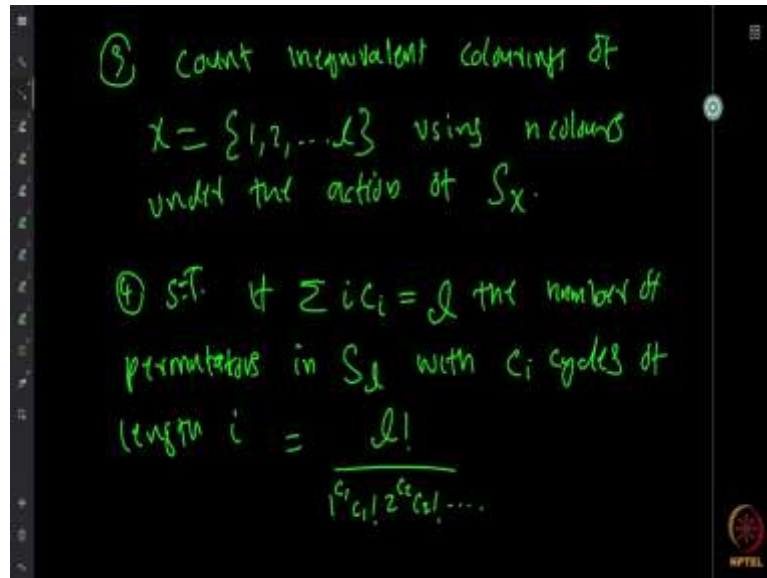 ③ Count inequivalent colourings of
X = {1,2,...l} using n colours
under the action of S_X.
④ S.T. if Σ i c_i = l the number of
permutations in S_l with c_i cycles of
length i = l! / 1^{c_1} c_1! 2^{c_2} c_2! ....
NPTEL